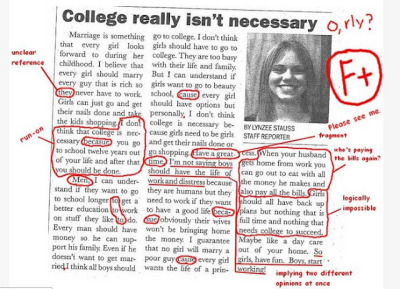 College really isn't necessary
O, rly?
F+
unclear
reference
run-on
Marriage is something
that every girl looks
forward to during her
childhood. I believe that
every girl should marry
every guy that is rich so
they never have to work.
Girls can just go and get
their nails done and take
the kids shopping. I don't
think that college is nec-
cessary because you go
to school twelve years out
of your life and after that
you should be done.
Men, I can under-
stand if they want to go
to school longer to get a
better education to work
on stuff they like to do.
Every man should have
money so he can sup-
port his family. Even if he
doesn't want to get mar-
ried, I think all boys should
go to college. I don't think
girls should have to go to
college. They are too busy
with their life and family.
But I can understand if
girls want to go to beauty
school, cause every girl
should have options but
personally, I don't think
college is necessary be-
cause girls need to be girls
and get their nails done or
go shopping. Have a great
time. I'm not saying boys
should have the life of
work and distress because
they are humans but they
need to work if they want
to have a good life becau-
se obviously their wives
won't be bringing home
the money. I guarantee
that no girl will marry a
poor guy cause every girl
wants the life of a prin-
BY LYNZEE STAUSS
STAFF REPORTER
Please see me.
fragment
cess. When your husband
gets home from work you
can go out to eat with all
the money he makes and
also pay all the bills. Girls
should all have back up
plans but nothing that is
full time and nothing that
needs college to succeed.
Maybe like a day care
out of your home. So
girls, have fun. Boys, start
working!
who's paying
the bills again?
logically
impossible
implying two different
opinions at once